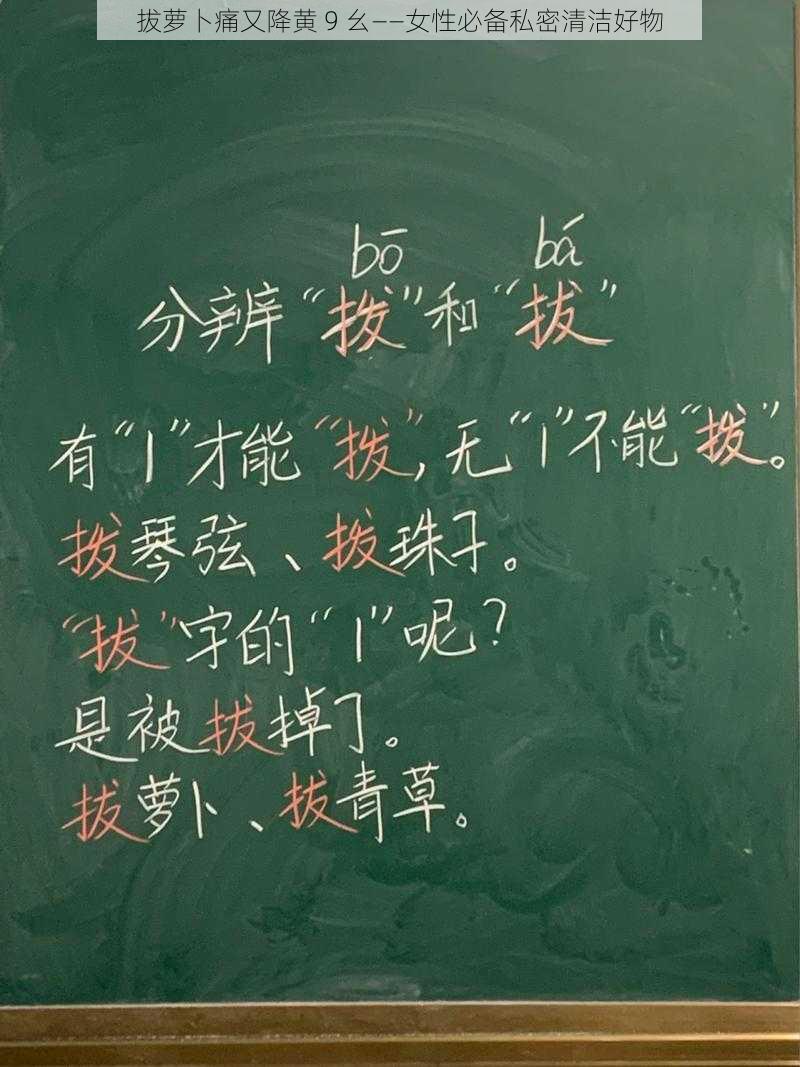 拔萝卜痛又降黄 9 幺——女性必备私密清洁好物
bō bá
分辨“拨”和“拔”
有“丨”才能“拨”，无“丨”不能“拨”。
拨琴弦、拨珠子。
“拔”字的“丨”呢？
是被拔掉了。
拔萝卜、拔青草。